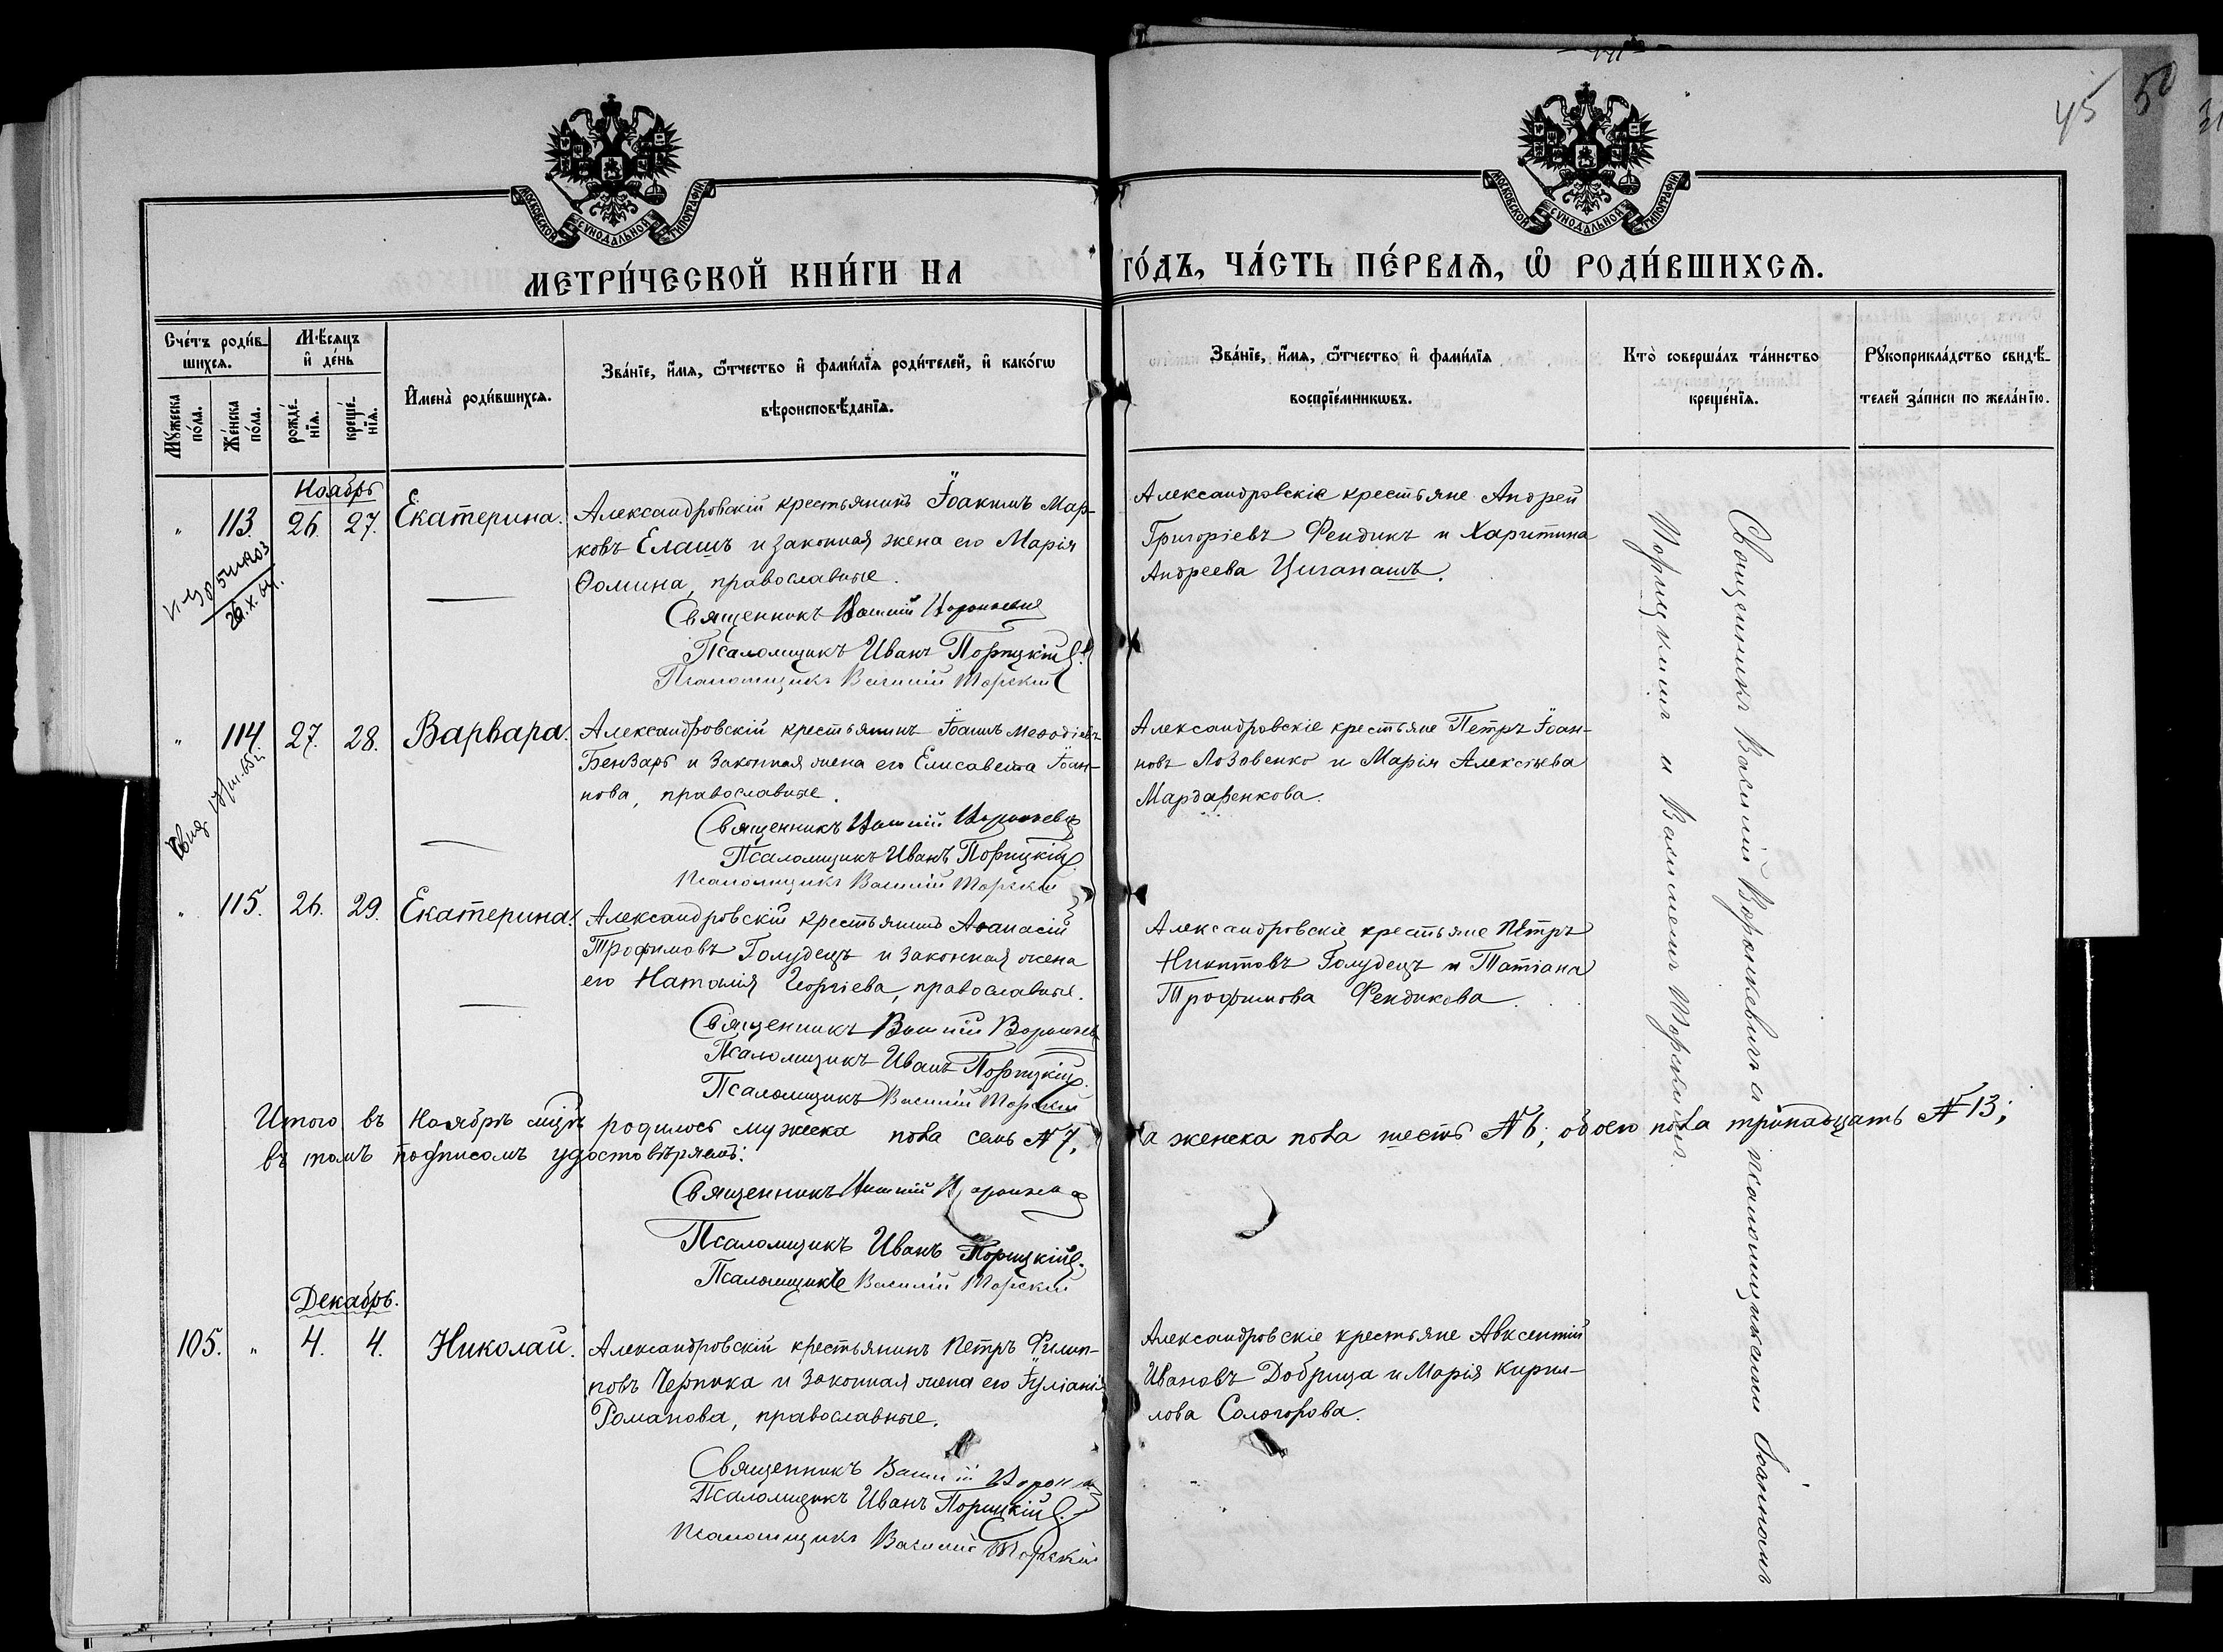 45
50
МОСКОВСКОЙ СѴНОДАЛЬНОЙ ТИПОГРАФІИ
МОСКОВСКОЙ СѴНОДАЛЬНОЙ ТИПОГРАФІИ
МЕТРИ́ЧЕСКОЙ КНИ́ГИ НА
ГО́ДЪ, ЧА́СТЬ ПЕ́РВАѦ, Ѡ҆ РОДИ́ВШИХСѦ.
Сче́тъ роди́в-
шихсѧ.
Мꙋ́жеска по́ла.
Же́нска по́ла.
Мѣ́сѧцъ
и҆ де́нь
рожде́-
нїѧ.
креще́-
нїѧ.
И҆мена̀ роди́вшихсѧ.
Зва́нїе, и҆́мѧ, ѻ҆́тчество и҆ фами́лїѧ роди́телей, и҆ како́гѡ
вѣроисповѣ́данїѧ.
Зва́нїе, и҆́мѧ, ѻ҆́тчество и҆ фами́лїѧ
воспрїе́мникѡвъ.
Кто̀ соверша́лъ та́инство
креще́нїѧ.
Рꙋкоприкла́дство свидѣ́-
телей за́писи по жела́нїю.
Ноябрь
" 113. 26. 27. Екатерина.
26.X.64.
Александровскій крестьянинъ Іоакимъ Мар-
ковъ Елашъ и законная жена его Марія
Ѳомина, православные.
Священникъ Василій Воронкевич
Псаломщикъ Иванъ Порицкій
Псаломщикъ Василій Торскій
Александровскіе крестьяне Андрей
Григоріевъ Фендикъ и Харитина
Андреева Циганашъ.
" 114. 27. 28. Варвара.
Александровскій крестьянинъ Іоаннъ Меѳодіевъ
Бензарь и законная жена его Елисавета Іоан-
нова, православные.
Священникъ Василій Воронкевич
Псаломщикъ Иванъ Порицкій
Псаломщикъ Василій Торскій
Александровскіе крестьяне Петръ Іоан-
новъ Лозовенко и Марія Алексіева
Мардаренкова.
" 115. 26. 29. Екатерина.
Александровскій крестьянинъ Аѳанасій
Трофимовъ Голудецъ и законная жена
его Наталія Георгіева, православные.
Священникъ Василій Воронкевич
Псаломщикъ Иванъ Порицкій
Псаломщикъ Василій Торскій
Александровскіе крестьяне Петръ
Никитовъ Голудецъ и Татіана
Трофимова Фендикова.
Итого въ Ноябрѣ мцѣ родилось мужеска пола семь № 7, а женска пола шесть № 6; обоего пола тринадцать № 13;
въ томъ подписомъ удостовѣряемъ:
Священникъ Василій Воронкевич
Псаломщикъ Иванъ Порицкій
Псаломщикъ Василій Торскій
Декабрь.
105. " 4. 4. Николай.
Александровскій крестьянинъ Петръ Филип-
повъ Черпика и законная жена его Іуліанія
Романова, православные.
Священникъ Василій
Псаломщикъ Иванъ Порицкій
Псаломщикъ Василій Торскій
Александровскіе крестьяне Авксентій
Ивановъ Добрица и Марія Кирил-
лова Сологорова.
Священникъ Василій Воронкевичъ съ псаломщиками Іоанномъ
Порицкимъ и Василіемъ Торскимъ.